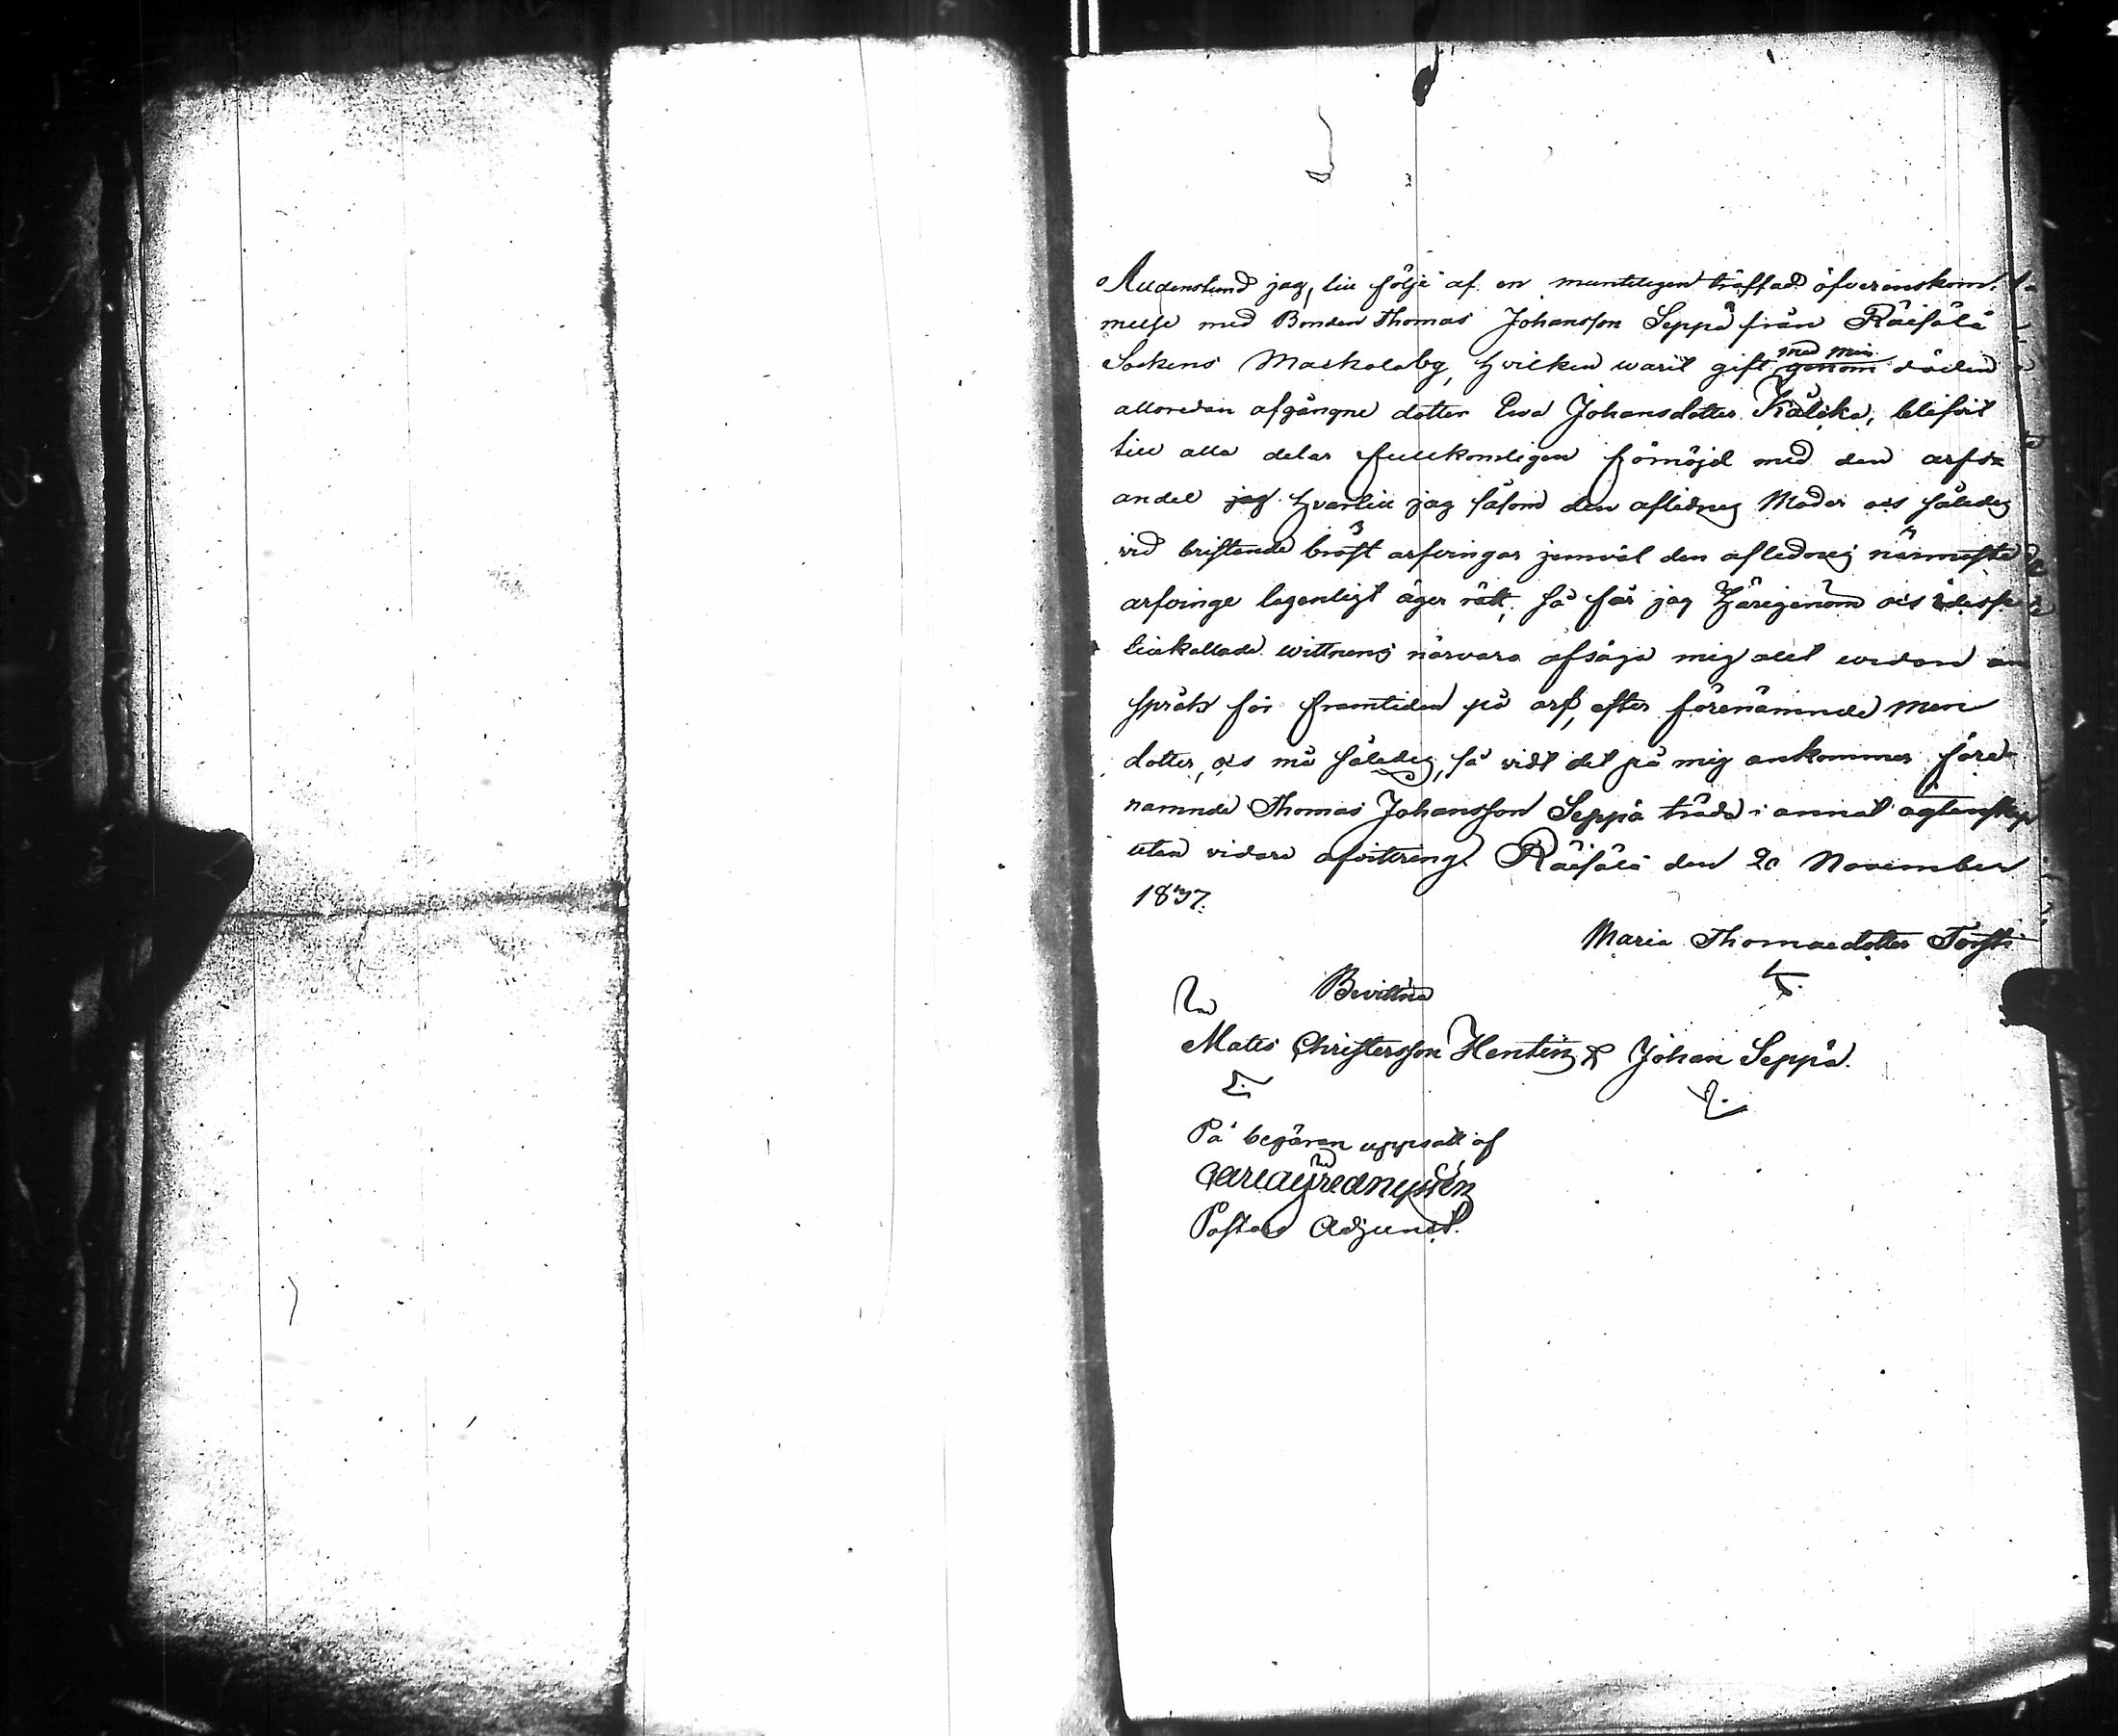 Alldenstund jag, till följe af en muntligen träffad öfverenskom-
melse med Bonden Thomas Johansson Seppä från Räisälä
Sockens Maskolaby, hvilken warit gift med min genom döden
allaredan afgångne dotter Ewa Johansdotter Käläkä, blifvit
till alla delar fullkomligen förnöjd med den arfs-
andel jag hvartill jag såsom den aflidnes Moder och således
vid bristande bröst arfvingar jemväl den aflednes närmaste
arfvinge lagenligt äger rätt, så får jag härigenom och i dessa
tillkallade wittnens närvaro afsäga mig allt widare an
språk för framtiden på arf, efter förenämnde min
dotter, och må således, så vidt det på mig ankommer före
namnde Thomas Johansson Seppä träda i annat ägtenskap
utan vidare afvittring. Räisälä den 20 November
1837.
Maria Thomaedotter Torsti
Bevittna
Matts Christersson Hentinen & Johan Seppä.
På begäran uppsatt af
Pastors Adjunct.